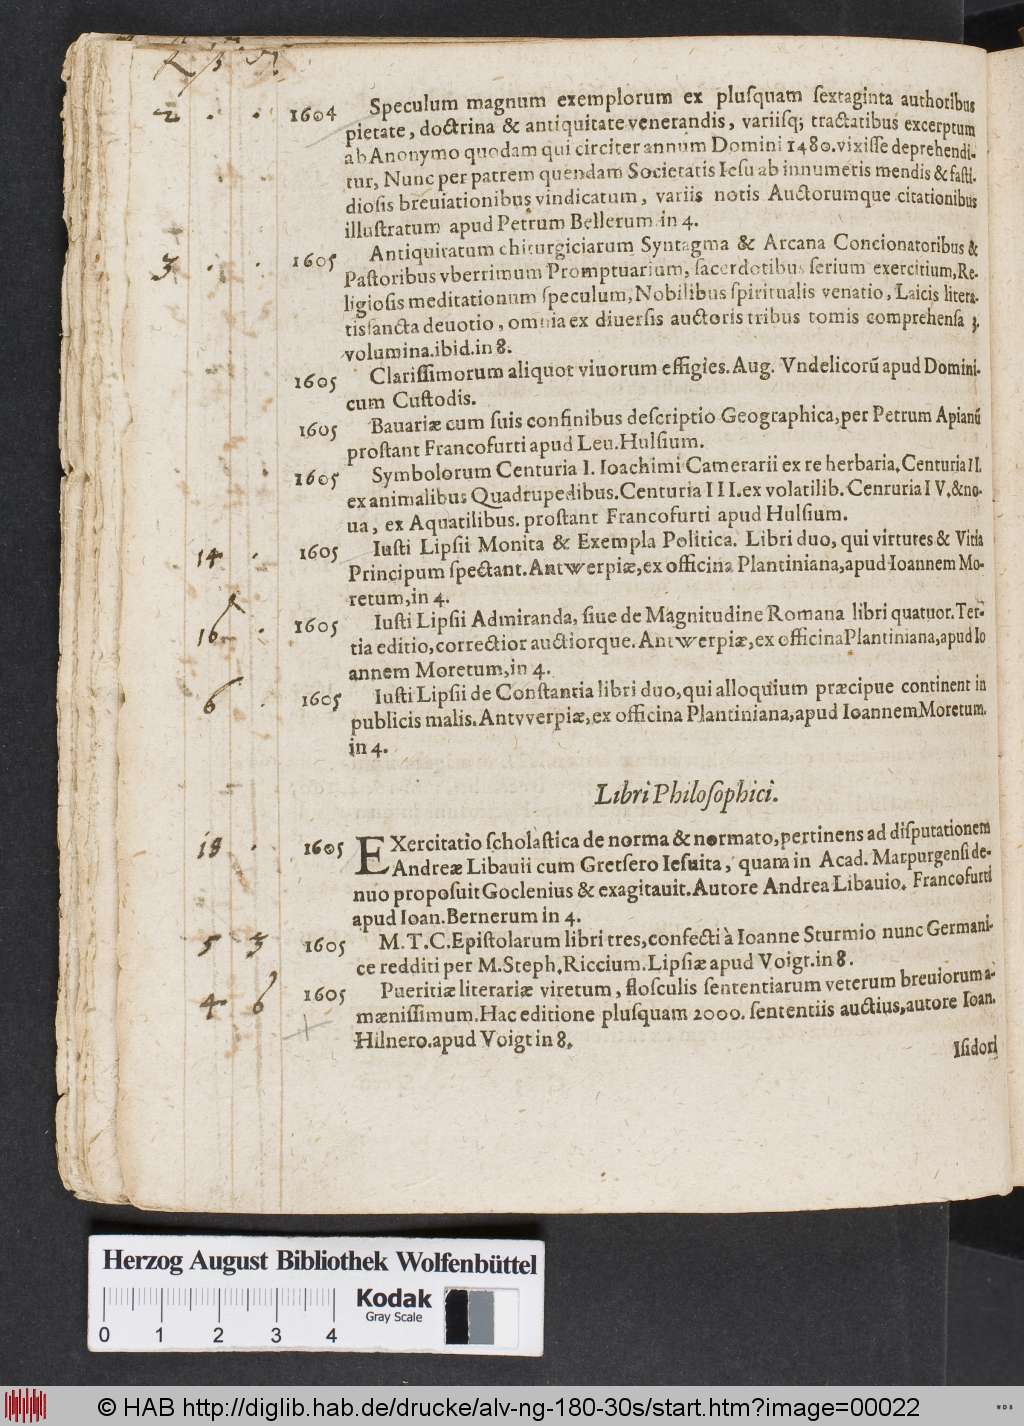 2 . . 1604 Speculum magnum exemplorum ex pluſquam ſextaginta authoribus
pietate, doctrina & antiquitate venerandis, variiſq; tractatibus excerptum
ab Anonymo quodam qui circiter annum Domini 1480. vixiſſe deprehendi-
tur, Nunc per patrem quendam Societatis Ieſu ab innumeris mendis & faſti-
dioſis breuiationibus vindicatum, variis notis Auctorumque citationibus
illuſtratum apud Petrum Bellerum in 4.
3 . . 1605 Antiquitatum chirurgiciarum Syntagma & Arcana Concionatoribus &
Paſtoribus vberrimum Promptuarium, ſacerdotibus ſerium exercitium, Re-
ligioſis meditationum ſpeculum, Nobilibus ſpiritualis venatio, Laicis litera-
tis ſancta deuotio, omnia ex diuerſis auctoris tribus tomis comprehenſa 3.
volumina. ibid. in 8.
1605 Clariſſimorum aliquot viuorum effigies. Aug. Vndelicorũ apud Domini-
cum Cuſtodis.
1605 Bauariæ cum ſuis confinibus deſcriptio Geographica, per Petrum Apianũ
proſtant Francofurti apud Leu. Hulſium.
1605 Symbolorum Centuria I. Ioachimi Camerarii ex re herbaria, Centuria II.
ex animalibus Quadrupedibus. Centuria III. ex volatilib. Cenruria IV. & no-
ua, ex Aquatilibus. proſtant Francofurti apud Hulſium.
14 . 1605 Iuſti Lipſii Monita & Exempla Politica. Libri duo, qui virtutes & Vitia
Principum ſpectant. Antwerpiæ, ex officina Plantiniana, apud Ioannem Mo-
retum, in 4.
16 . 1605 Iuſti Lipſii Admiranda, ſiue de Magnitudine Romana libri quatuor. Ter-
tia editio, correctior auctiorque. Antwerpiæ, ex officina Plantiniana, apud Io
annem Moretum, in 4.
6 . 1605 Iuſti Lipſii de Conſtantia libri duo, qui alloquium præcipue continent in
publicis malis. Antvverpiæ, ex officina Plantiniana, apud Ioannem Moretum.
in 4.
Libri Philoſophici.
18 . 1605 EXercitatio ſcholaſtica de norma & normato, pertinens ad diſputationem
Andreæ Libauii cum Gretſero Ieſuita, quam in Acad. Marpurgenſi de-
nuo propoſuit Goclenius & exagitauit. Autore Andrea Libauio. Francofurti
apud Ioan. Bernerum in 4.
5 3 1605 M. T. C. Epiſtolarum libri tres, confecti à Ioanne Sturmio nunc Germani-
ce redditi per M. Steph. Riccium. Lipſiæ apud Voigt. in 8.
4 6 1605 Pueritiæ literariæ viretum, floſculis ſententiarum veterum breuiorum a-
mæniſſimum. Hac editione pluſquam 2000. ſententiis auctius, autore Ioan.
Hilnero. apud Voigt in 8.
Iſidori
Herzog August Bibliothek Wolfenbüttel
Kodak
Gray Scale
0 1 2 3 4
© HAB http://diglib.hab.de/drucke/alv-ng-180-30s/start.htm?image=00022